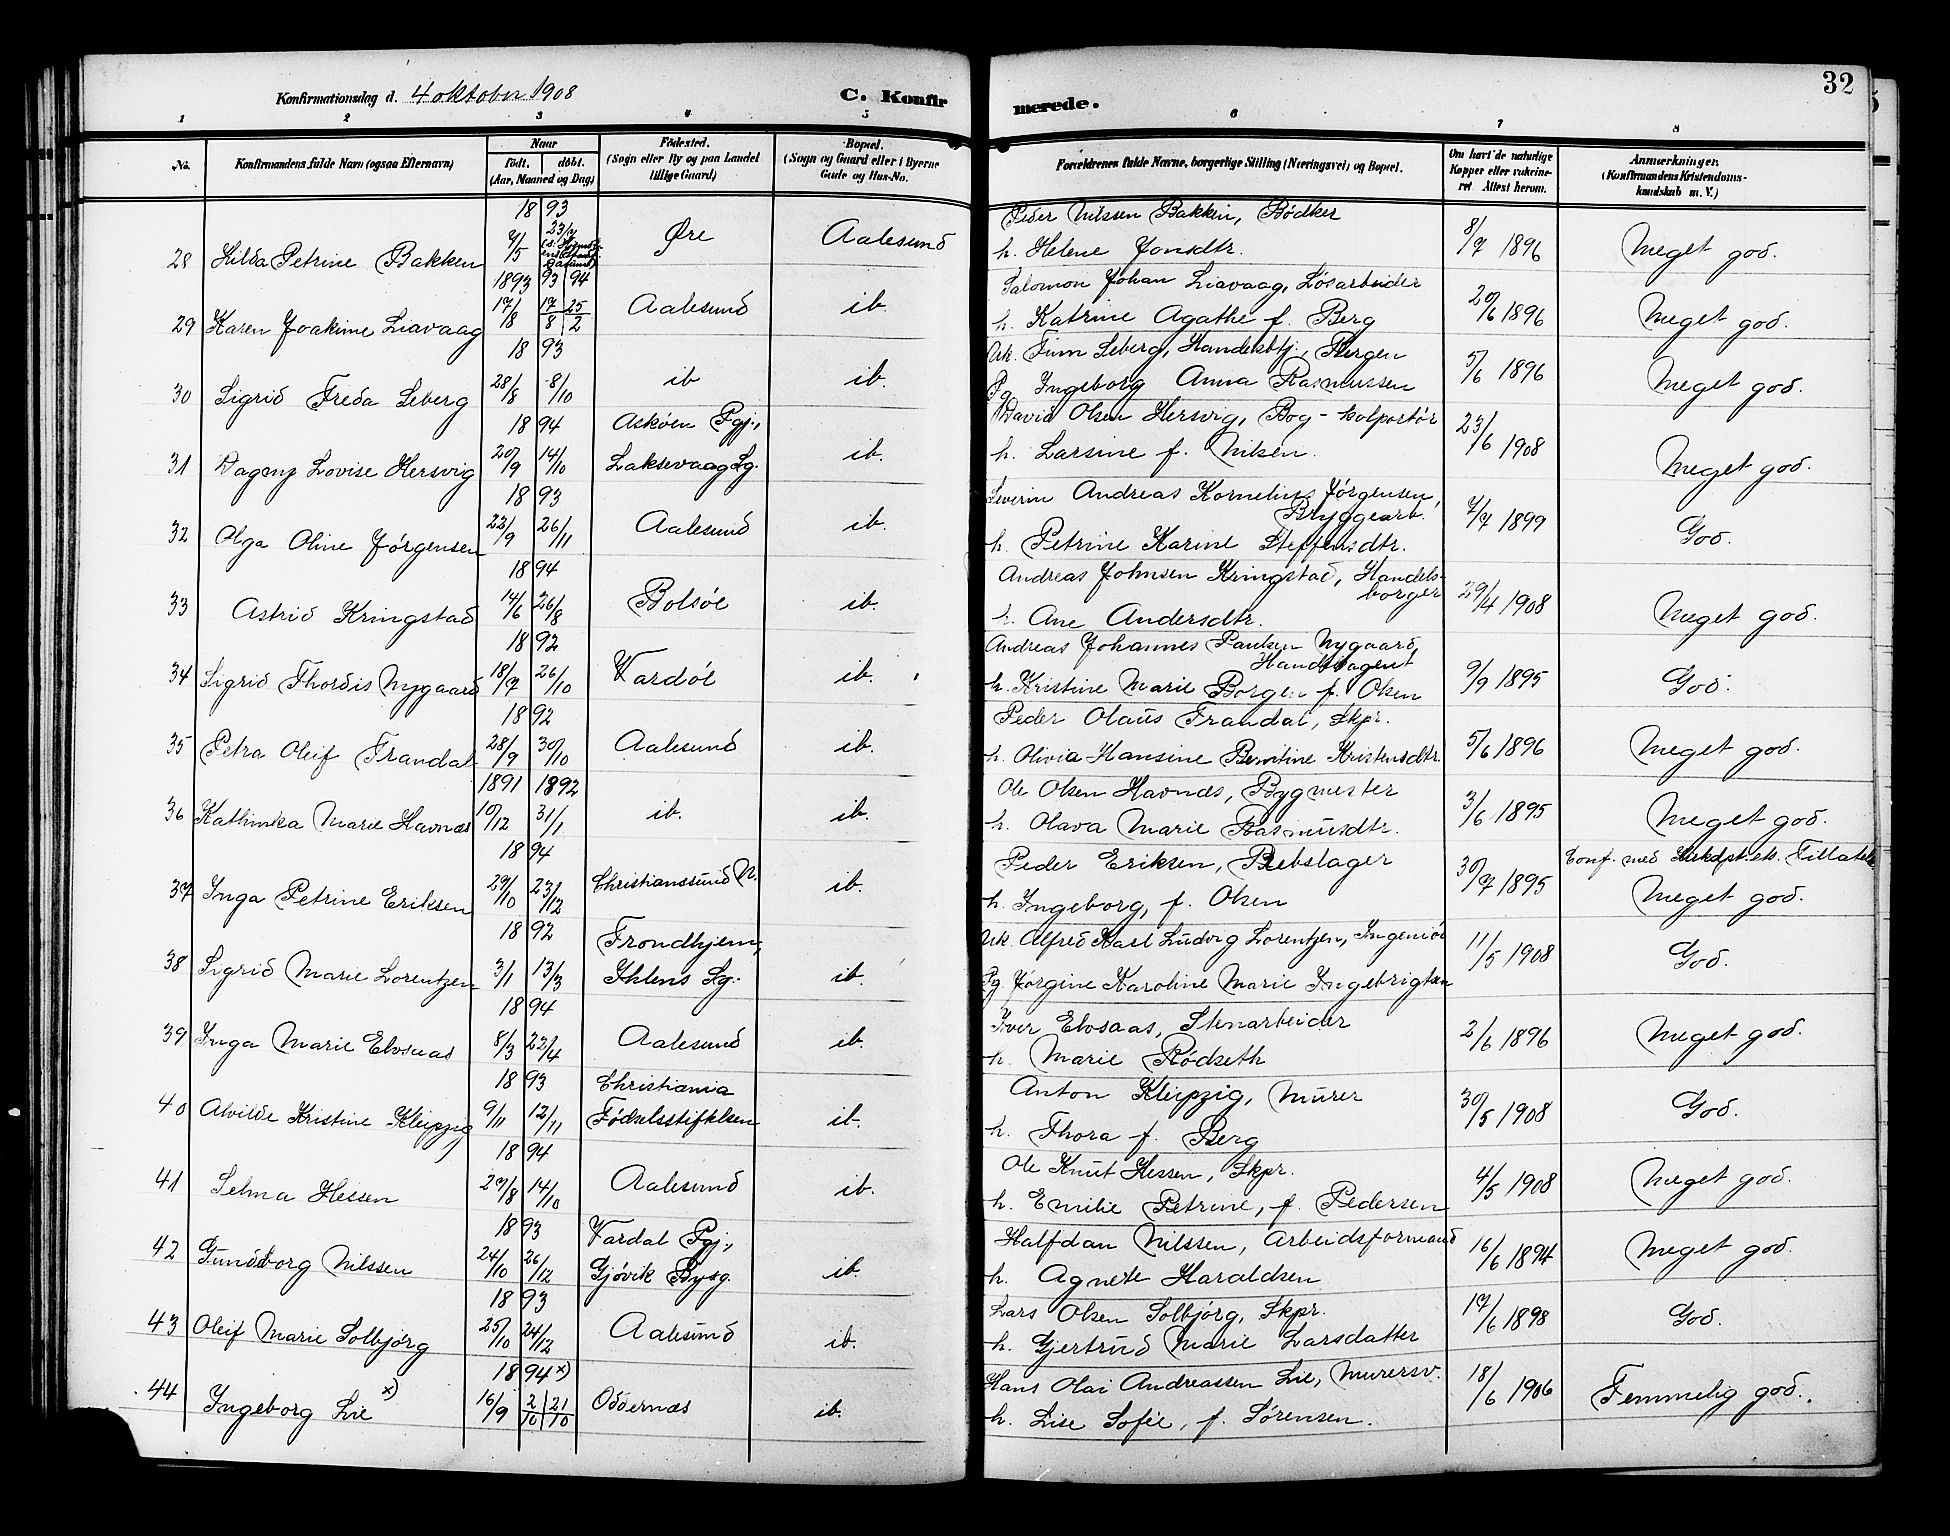 32
Konfirmationsdag d. 4 oktober 1908
C. Konfirmerede.
1 2 3 4 5 6 7 8
No.
Konfirmandens fulde Navn (ogsaa Efternavn)
Naar
født. døbt.
(Aar, Maaned og Dag)
Fødested.
(Sogn eller By og paa Landet
tillige Gaard)
Bopæl.
(Sogn og Gaard eller i Byerne
Gade og Hus-No.
Forældrenes fulde Navne, borgerlige Stilling (Næringsvei) og Bopæl.
Om havt de naturlige
Kopper eller vakcine-
ret Attest herom.
Anmærkninger.
(Konfirmandens Kristendoms-
kundskab m. V.)
18 93 Peder Nilssen Bakken, Bødker
28 Hilda Petrine Bakken 7/5 23/7 Øre Aalesund h. Helene Jonsdtr. 8/7 1896 Meget god.
1893 93 94 Salomon Johan Liavaag, Løsarbeider
29 Karen Joakime Liavaag 17/8 17/8 25/2 Aalesund ib. h. Katrine Agathe f. Berg 20/6 1896 Meget god.
18 93 Uk. Finn Seberg, Handelsbtj., Bergen
30 Sigrid Freda Seberg 28/8 8/10 ib ib. Pg. Ingeborg Anna Rasmussen 5/6 1896 Meget god.
18 94 Askøen Pgj., David Olsen Hersvig, Bog-kolportør
31 Dagny Lovise Hersvig 20/9 14/10 Laksevaag Sg. ib. h. Larsine f. Nilsen. 23/6 1908 Meget god.
18 93 Severin Andreas Kornelius Jørgensen,
Bryggearb.
32 Olga Oline Jørgensen 22/9 26/11 Aalesund ib. h. Petrine Karine Steffensdtr. 7/7 1899 God.
18 94 Andreas Johnsen Kringstad, Handels-
borger
33 Astrid Kringstad 14/6 26/8 Bolsøe ib. h. Ane Andersdtr. 29/4 1908 Meget god.
18 92 Andreas Johannes Paulsen Nygaard,
Handelsagent
34 Sigrid Thordis Nygaard 18/7 26/10 Vardøe ib. h. Kristine Marie Borgen f. Olsen 9/9 1895 God.
18 92 Peder Olaus Frandal, Skpr.
35 Petra Oleif Frandal 28/9 30/10 Aalesund ib. h. Olivia Hansine Berntine Kristensdtr. 5/6 1896 Meget god.
1891 1892 Ole Olsen Havnæs, Bygmester
36 Kathinka Marie Havnæs 10/12 31/1 ib. ib. h. Olava Marie Rasmusdtr. 3/6 1895 Meget god.
18 94 Peder Eriksen, Rebslager Conf. med Tillatelse
37 Inga Petrine Eriksen 29/10 23/12 Christianssund N. ib. h. Ingeborg, f. Olsen 30/7 1895 Meget god.
18 92 Trondhjem, Uk. Alfred Karl Ludvig Lorentzen, Ingeniør
38 Sigrid Marie Lorentzen 3/1 13/3 Ihlens Sg. ib. Pg. Jørgine Karoline Marie Ingebrigtsen 11/5 1908 God.
18 94 Iver Elvsaas, Stenarbeider
39 Inga Marie Elvsaas 8/3 22/4 Aalesund ib. h. Marie Rødseth 2/6 1896 Meget god.
18 93 Christiania Anton Kleipzig, Murer
40 Alvilde Kristine Kleipzig 9/11 12/11 Fødselsstiftelsen ib. h. Thora f. Berg 30/5 1908 God.
18 94 Ole Knut Hessen, Skpr.
41 Selma Hessen 29/8 14/10 Aalesund ib. h. Emilie Petrine, f. Pedersen 4/5 1908 Meget god.
18 93 Vardal Pgj., Halfdan Nilssen, Arbeidsformand
42 Gundborg Nilssen 24/10 26/12 Gjøvik Bysg. ib. h. Agnete Haraldsen 16/6 1894 Meget god.
18 93 Lars Olsen Solbjørg, Skpr.
43 Oleif Marie Solbjørg 25/10 24/12 Aalesund ib. h. Gjertrud Marie Larsdatter 17/6 1898 God.
18 94 x) Hans Olai Andreassen Lie, Murersv.
44 Ingeborg Lie x) 16/9 2/10 21/10 Oddernæs ib. h. Lise Sofie, f. Sørensen. 18/6 1906 Temmelig god.